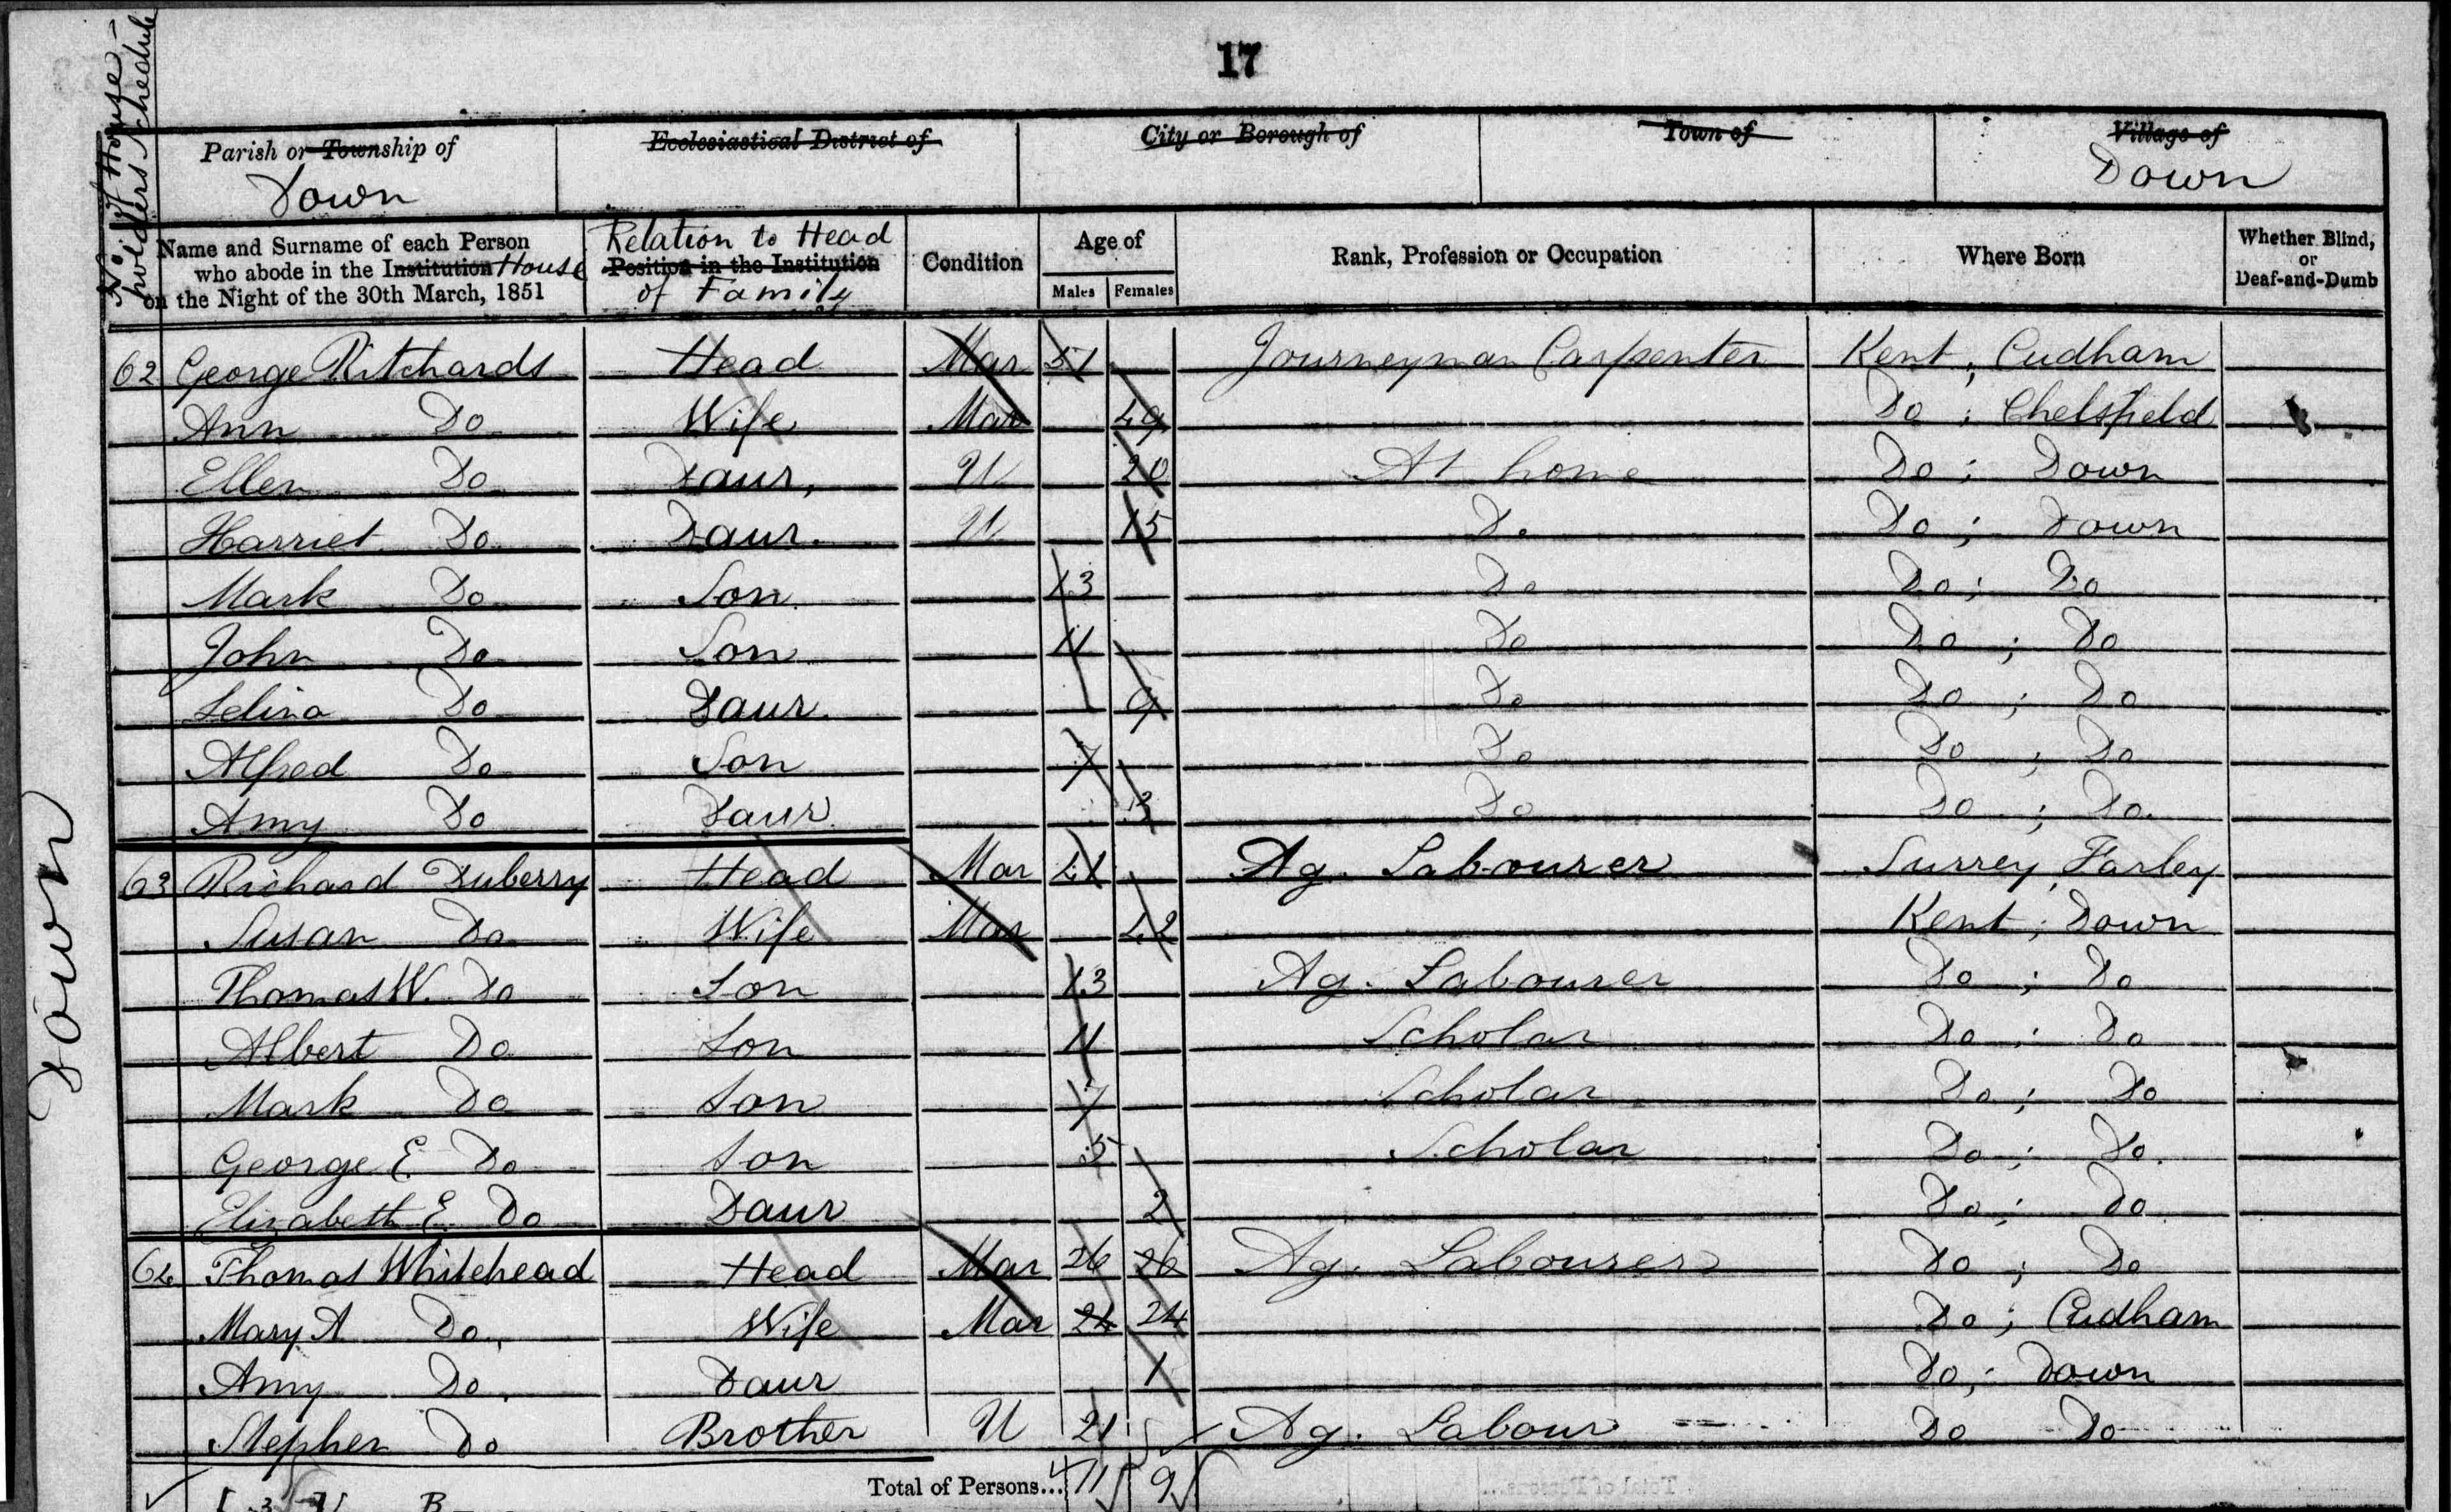 17
No. of House-
holders Schedule
Parish or Township of
Down
Ecclesiastical District of
City or Borough of
Town of
Village of
Down
Name and Surname of each Person
who abode in the Institution House
on the Night of the 30th March, 1851
Relation to Head
Position in the Institution
of Family
Condition
Age of
Males Females
Rank, Profession or Occupation
Where Born
Whether Blind,
or
Deaf-and-Dumb
62 George Ritchards Head Mar 51 Journeyman Carpenter Kent; Cudham
Ann Do Wife Mar 49 Do; Chelsfield
Ellen Do Daur, U 20 At home Do; Down
Harriet Do Daur. U 15 Do Do; Down
Mark Do Son 13 Do Do; Do
John Do Son 11 Do Do; Do
Selina Do Daur. 9 Do Do; Do
Alfred Do Son 7 Do Do; Do
Amy Do Daur 3 Do Do; Do.
63 Richard Duberry Head Mar 41 Ag. Labourer Surrey, Farley
Susan Do Wife Mar 42 Kent; Down
Thomas W. Do Son 13 Ag. Labourer Do; Do
Albert Do Son 11 Scholar Do; Do
Mark Do Son 7 Scholar Do; Do
George E. Do Son 5 Scholar Do; Do.
Elizabeth E. Do Daur 2 Do; Do
64 Thomas Whitehead Head Mar 26 26 Ag. Labourer Do; Do
Mary A Do, Wife Mar 24 24 Do; Cudham
Amy Do, Daur 1 Do; Down
Stephen Do Brother U 21 Ag. Labour Do Do
Total of Persons... 11 9
Down